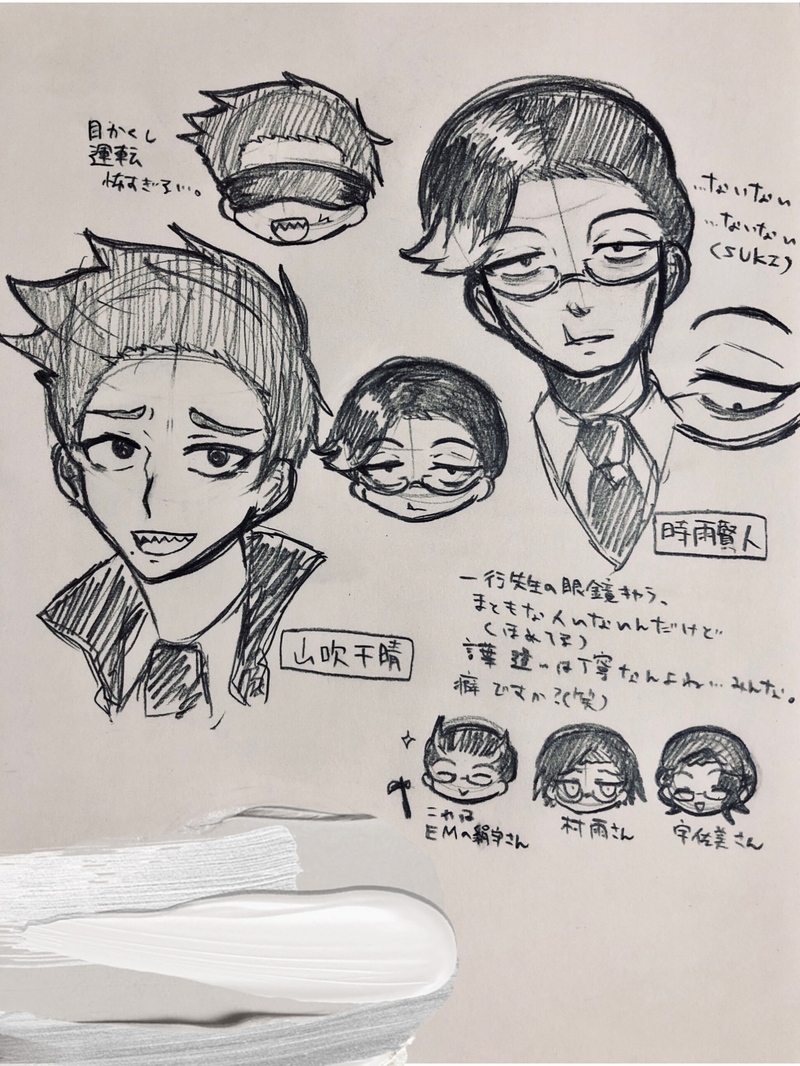 目かくし
運転
怖すぎる…。
…ないない
…ないない
(SUKI)
時雨賢人
山吹千晴
一行先生の眼鏡キャラ、
まともな人いないんだけど
(ほめてる)
言葉遣いは丁寧なんよね…みんな。
癖ですか?(笑)
これは
EMの絹守さん
村雨さん
宇佐美さん